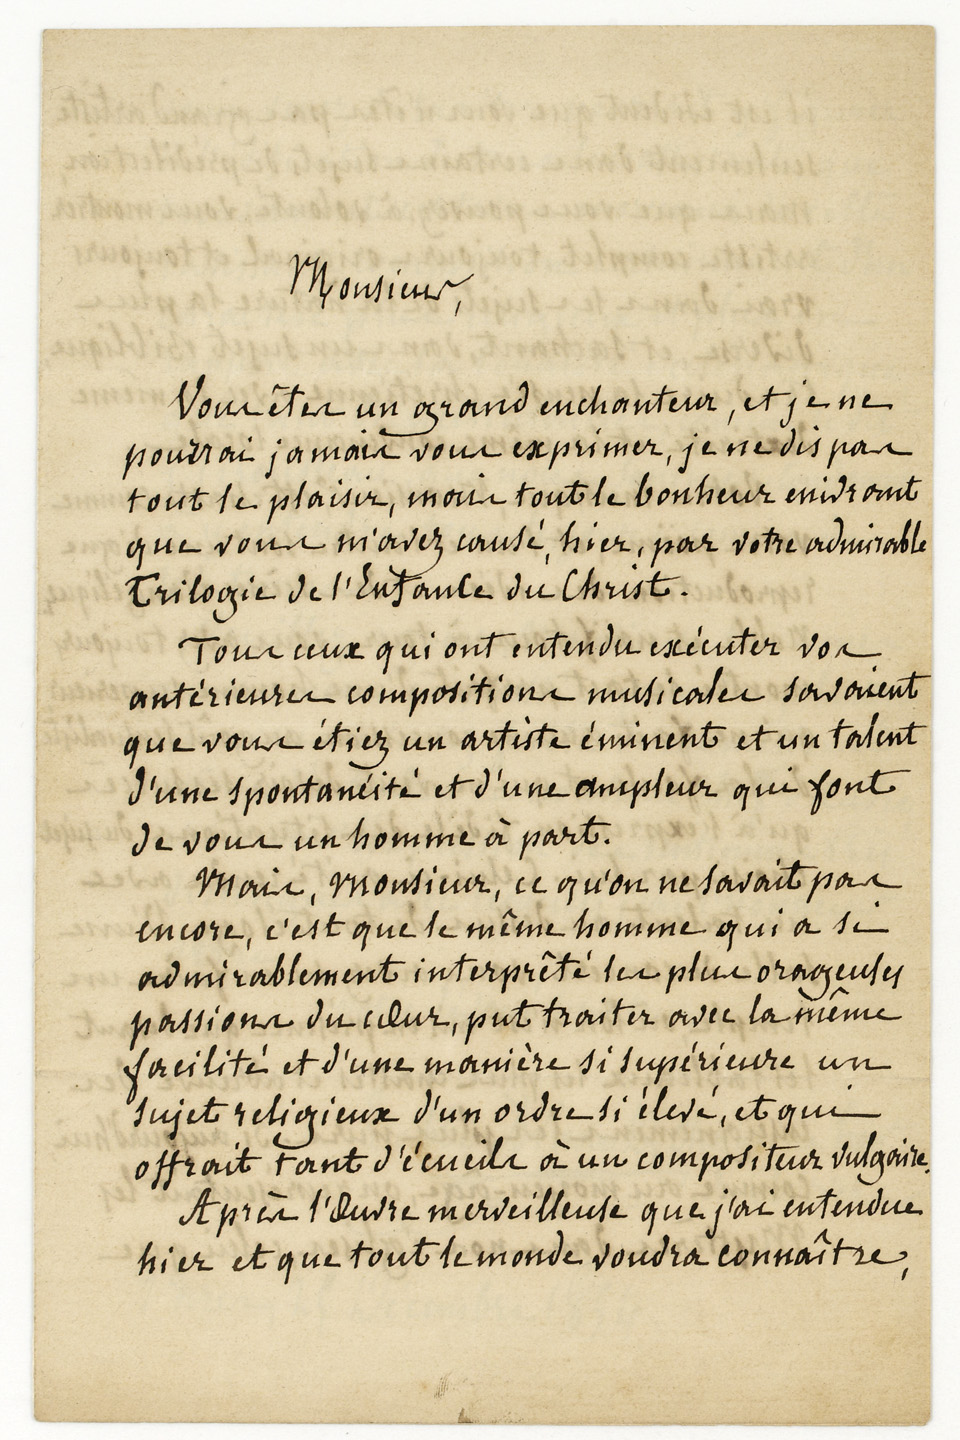 Monsieur,
Vous êtes un grand enchanteur, et je ne
pourrai jamais vous exprimer, je ne dis pas
tout le plaisir, mais tout le bonheur enivrant
que vous m'avez causé, hier, par votre admirable
Trilogie de l'Enfance du Christ.
Tous ceux qui ont entendu exécuter vos
antérieures compositions musicales savaient
que vous étiez un artiste éminent et un talent
d'une spontanéité et d'une ampleur qui font
de vous un homme à part.
Mais, Monsieur, ce qu'on ne savait pas
encore, c'est que le même homme qui a si
admirablement interprêté les plus orageuses
passions du cœur, put traiter avec la même
facilité et d'une manière si supérieure un
sujet religieux d'un ordre si élevé, et qui
offrait tant d'écueils à un compositeur vulgaire.
Après l'Œuvre merveilleuse que j'ai entendue
hier et que tout le monde voudra connaître,